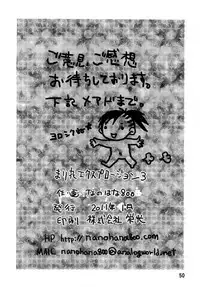 ご意見、ご感想
お待ちしております。
下記メアドまで。
ヨロシクね
まり丸エクスプロージョン3
作・画 なのはな800
発行 2011年 月
印刷 株式会社 栄光
HP http://nanohana800.com
MAIL nanohana800@analogworld.net
50